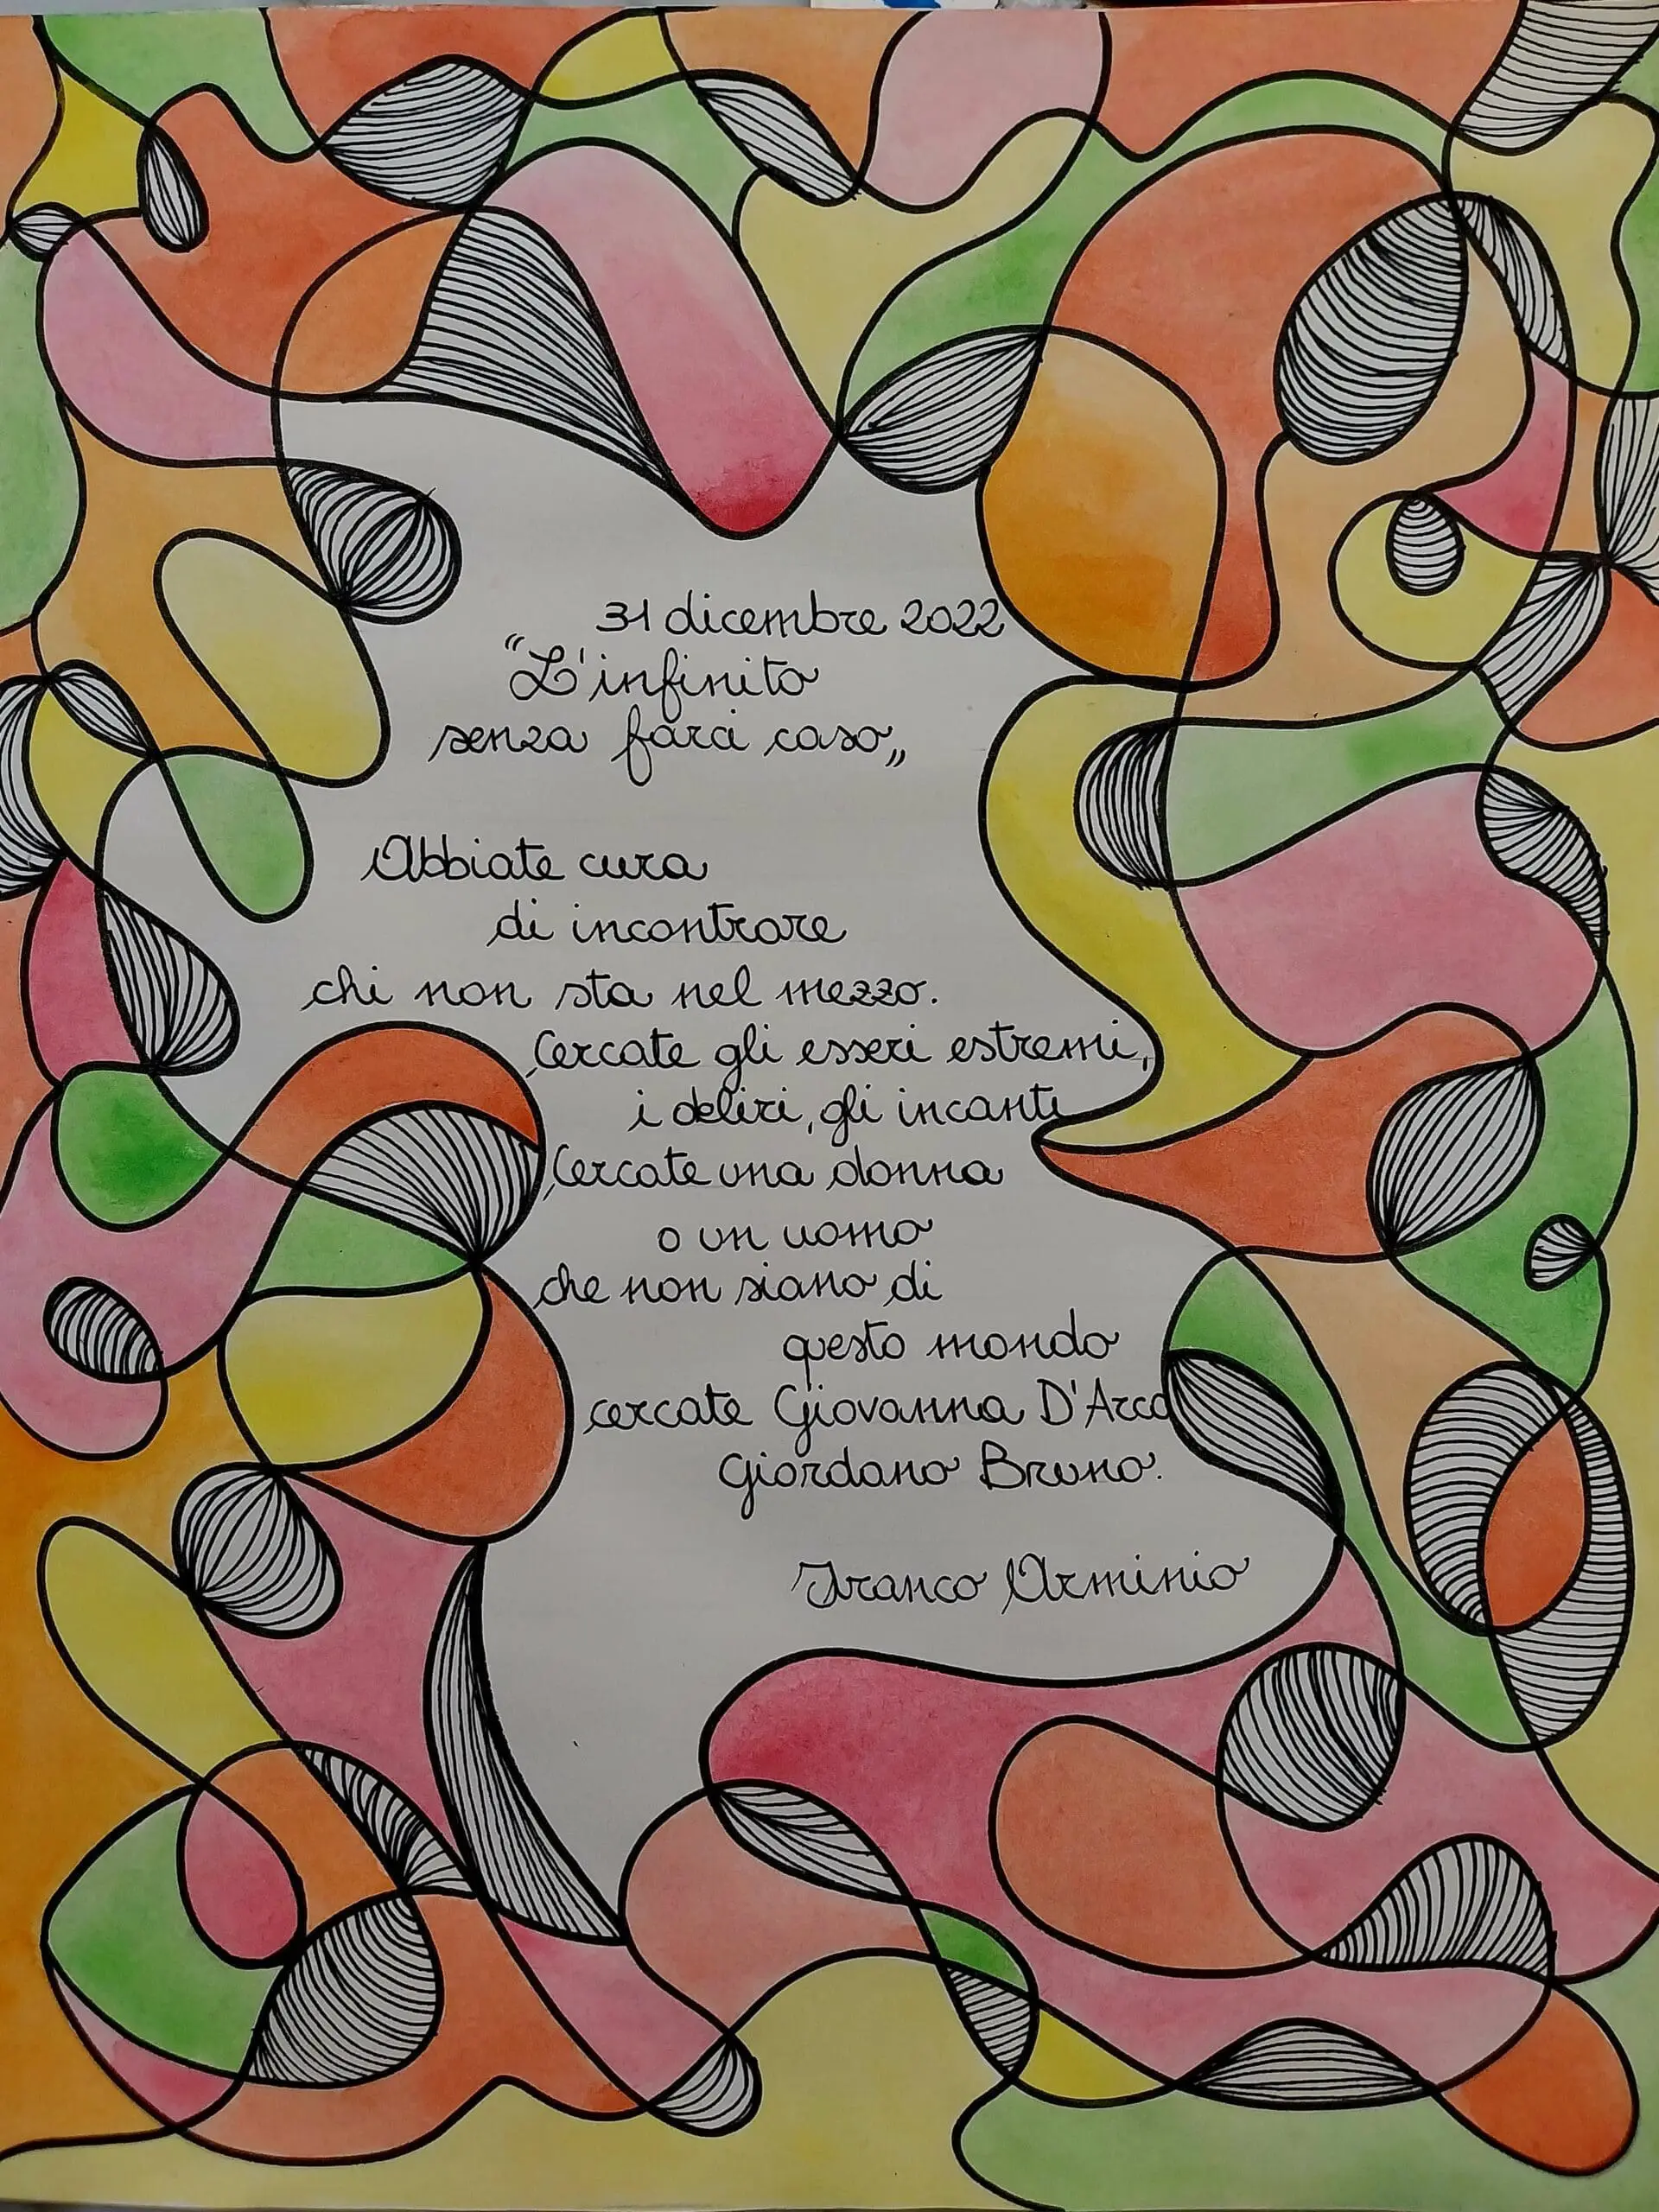 31 dicembre 2022
"L'infinito
senza farci caso„
Abbiate cura
di incontrare
chi non sta nel mezzo.
Cercate gli esseri estremi,
i deliri, gli incanti
Cercate una donna
o un uomo
che non siano di
questo mondo
cercate Giovanna D'Arco
Giordano Bruno.
Franco Arminio